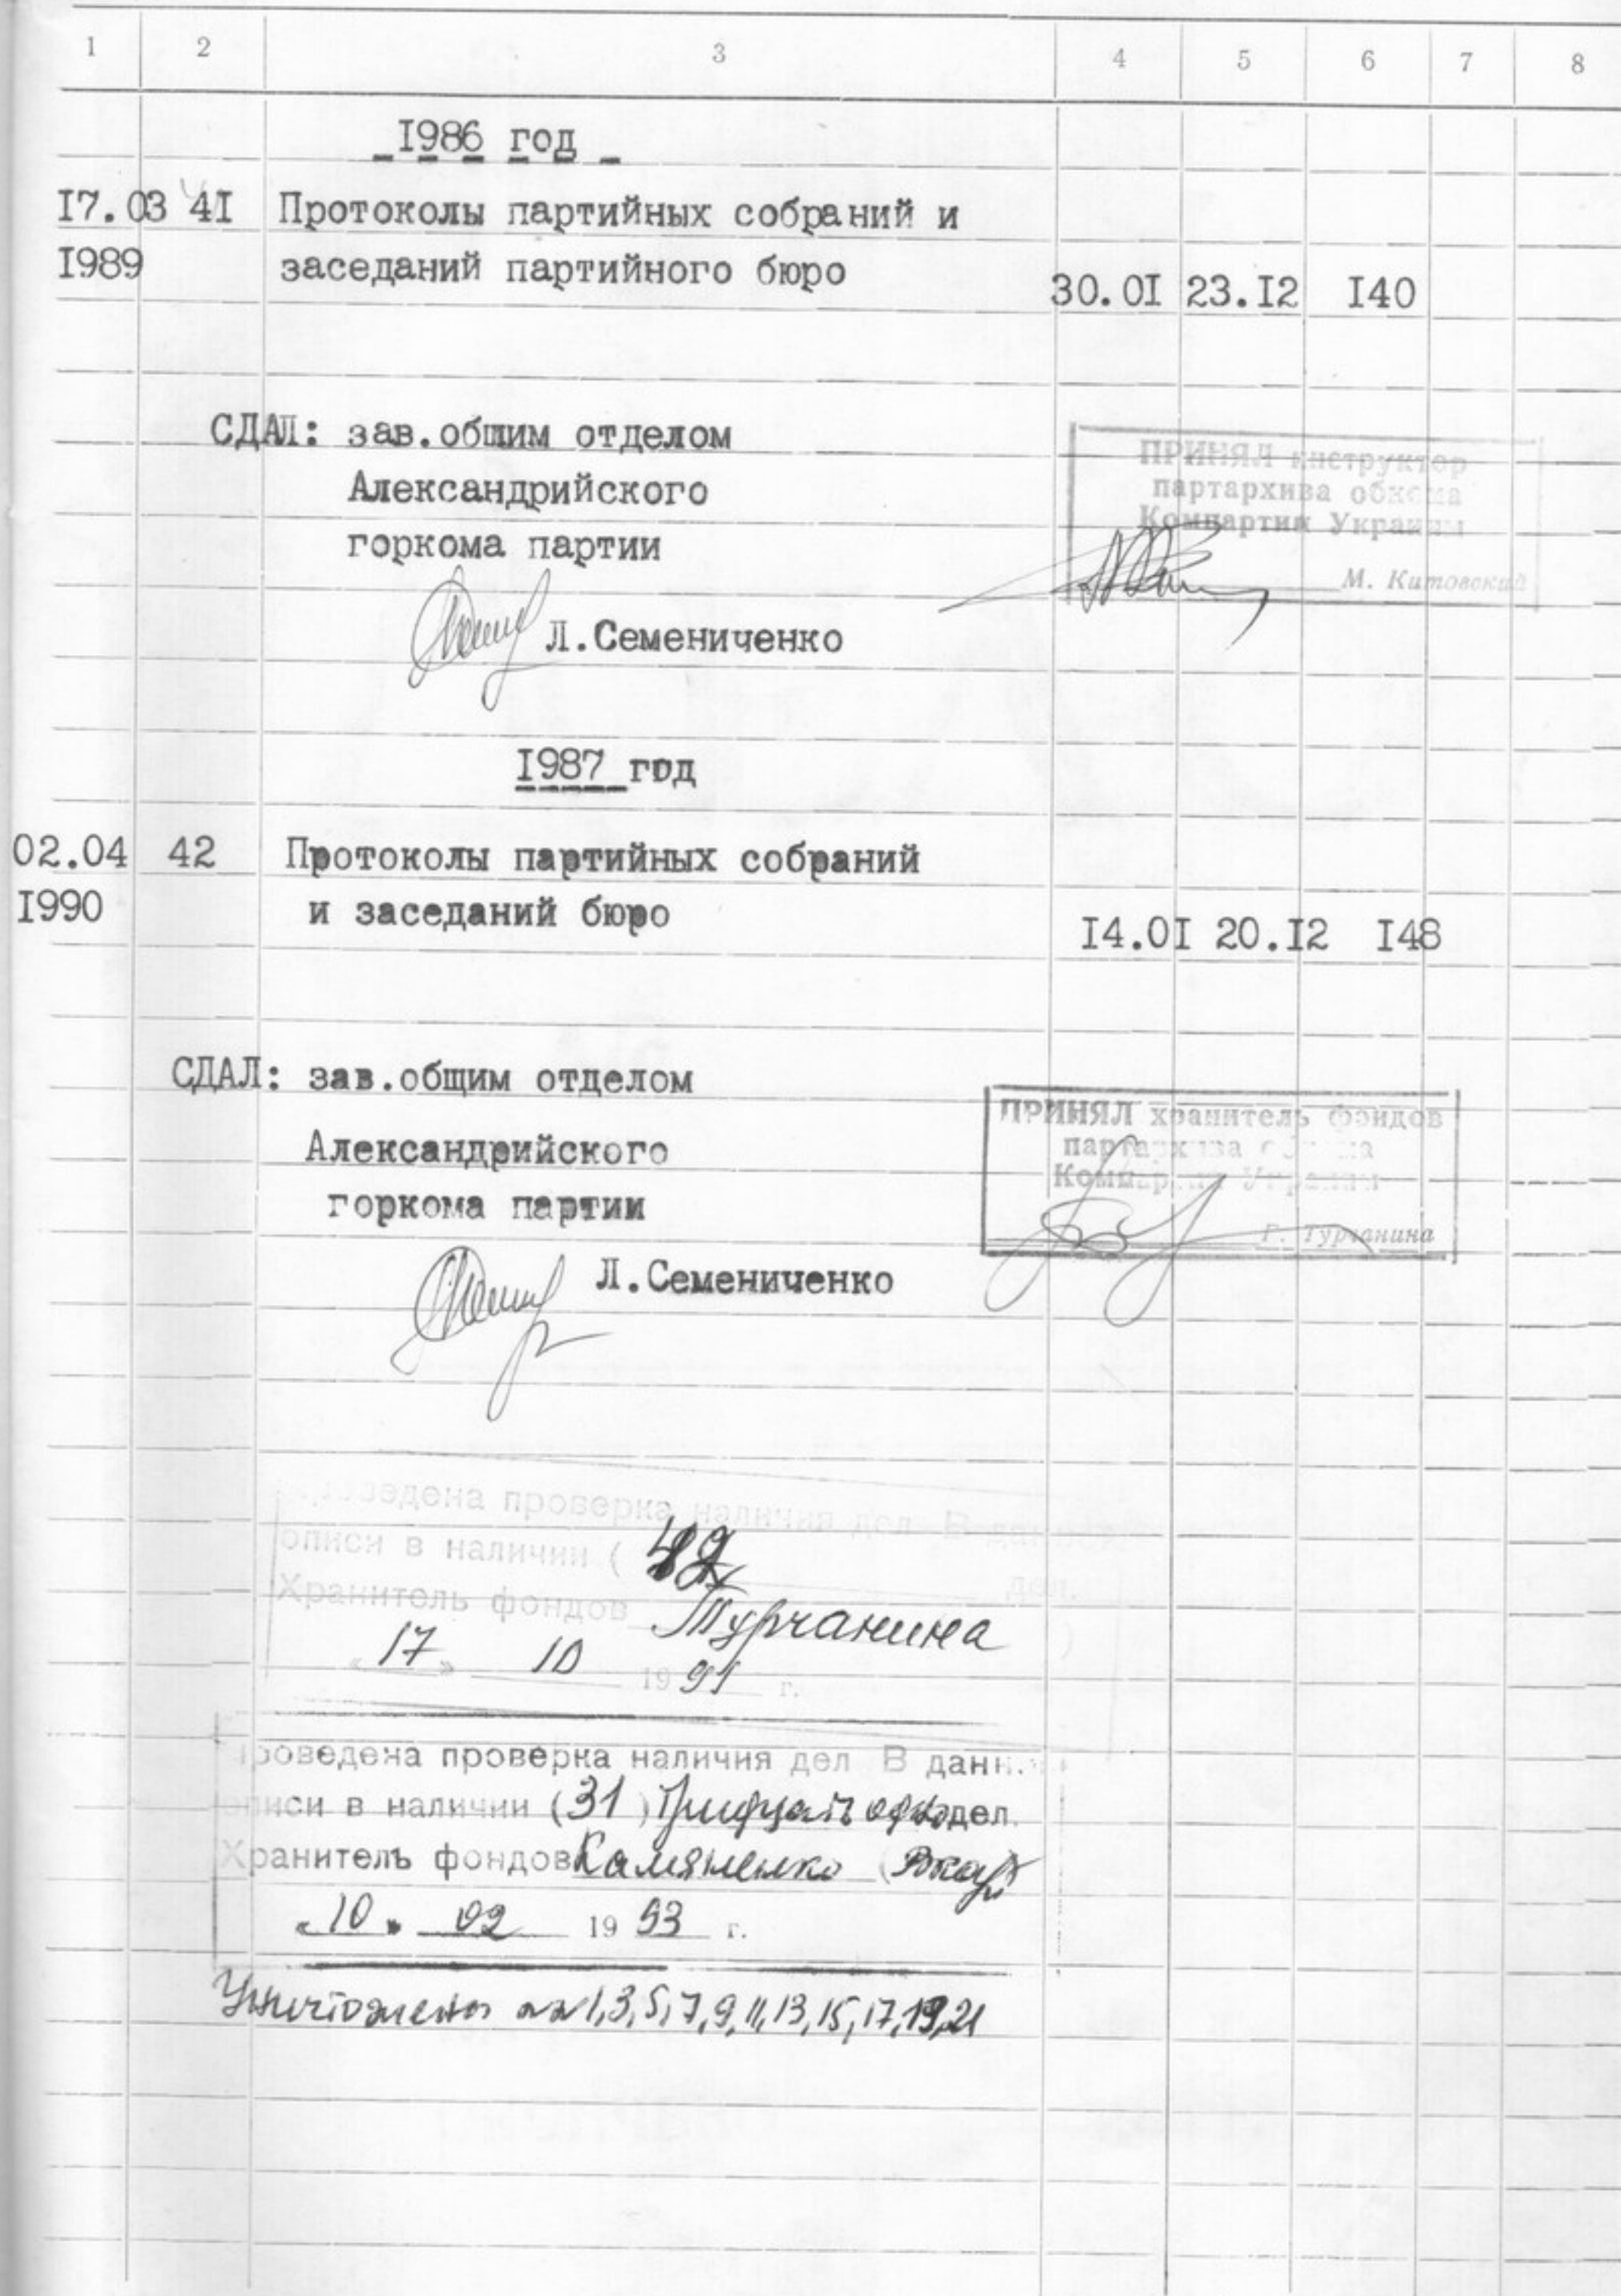 1 2 3 4 5 6 7 8
I986 год
I7.03 4I Протоколы партийных собраний и
I989 заседаний партийного бюро
30.0I 23.I2 I40
СДАЛ: зав.общим отделом
Александрийского
горкома партии
Л.Семениченко
ПРИНЯЛ инструктор
партархива обкома
Компартии Украины
М. Китовский
I987 год
02.04 42 Протоколы партийных собраний
I990 и заседаний бюро
I4.0I 20.I2 I48
СДАЛ: зав.общим отделом
Александрийского
горкома партии
Л.Семениченко
ПРИНЯЛ хранитель фондов
партархива обкома
Компартии Украины
Г. Турчанина
Проведена проверка наличия дел В данной
описи в наличии ( 42 дел.
Хранитель фондов Турчанина
« 17 » 10 19 91 г.
Проведена проверка наличия дел В данн
описи в наличии (31) Тридцать одно дел.
Хранитель фондов
«10» 02 19 93 г.
Уничтожены №№ 1,3,5,7,9,11,13,15,17,19,21